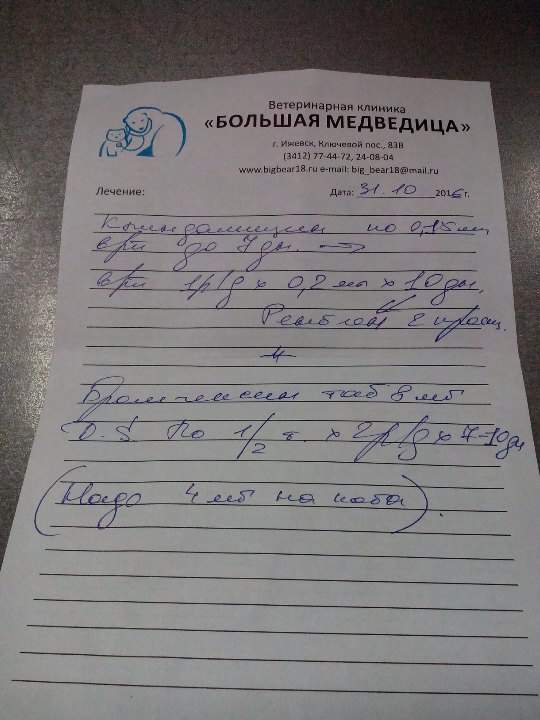 Ветеринарная клиника
«БОЛЬШАЯ МЕДВЕДИЦА»
г. Ижевск, Ключевой пос., 83В
(3412) 77-44-72, 24-08-04
www.bigbear18.ru e-mail: big_bear18@mail.ru
Лечение: Дата: 31.10 2016г.
Клиндамицин по 0,15 мл
в/м до 7 дн. →
в/м 1р/д х 0,2 мл х 10 дн.
Рентген 2 проекц.
Бромгексин таб 8 мг
D.S. По 1/2 т. х 2р/д х 7-10 дн
(Надо 4 мг на кота).